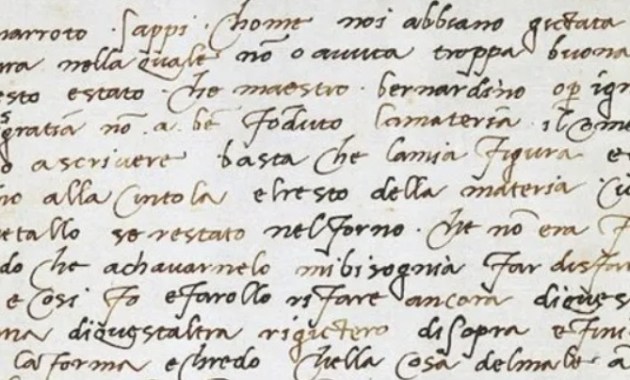 narroto · sappi · chome noi abbiano gictata
ra nella quale nō o auuta troppa buona
esto estato · che maestro · bernardino op ign
gratiā nō a bē fōduto lamateria il chome
o a scrivere basta che lamia figura e
no alla cintola elresto della materia cio
etallo se restato nel forno · che nō era f
do che achavarnelo mibisognia far disfar
e chosi fo efarollo rifare anchora diques
na diquestaltra rigictero disopra efini
la forma echredo chella chosa delmale a